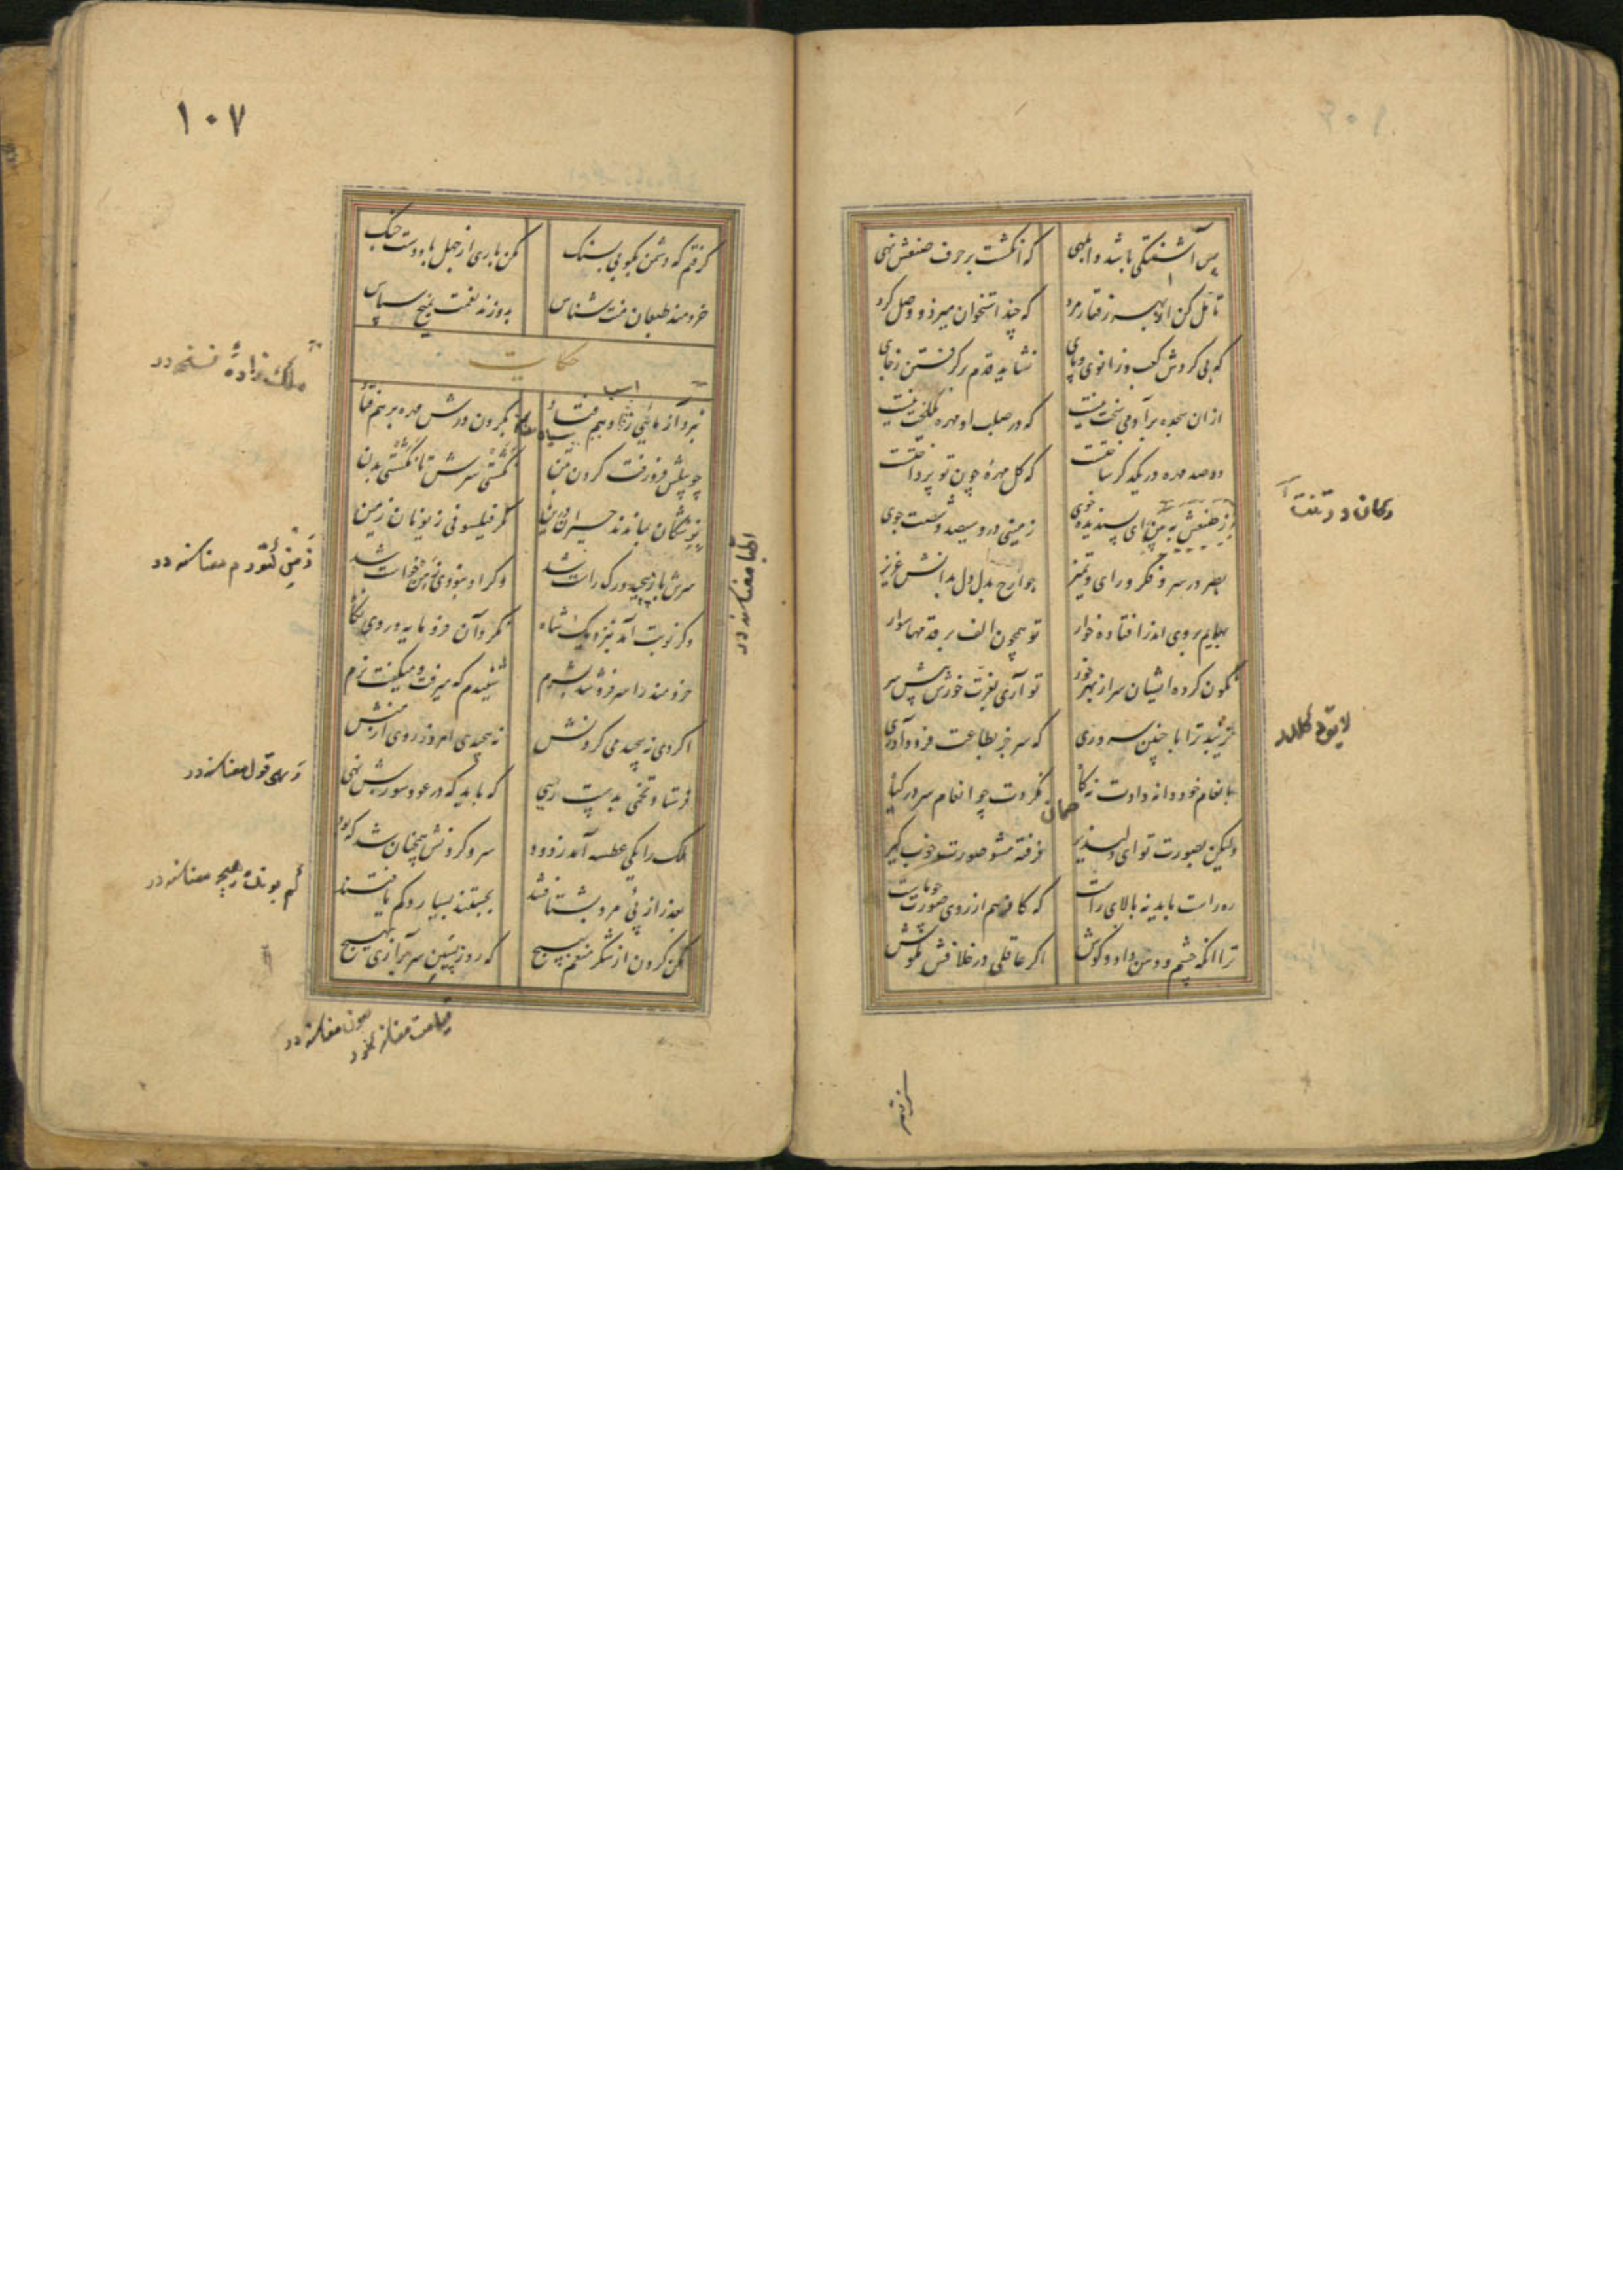 پس آشفتگی باشد و ابلهی
که انگشت بر حرف صنعش نهی
تأمل کن از بهر رفتار مرد
که چند استخوان میزد و وصل کرد
که بی گردش کعب و زانوی و پای
نشاید قدم برگرفتن ز جای
از ان سجده بر آدمی سخت نیست
که در صلب او مهره یکلخت نیست
دو صد مهره در یکدگر ساخت
که گل مهره چون تو پرداخت
زمینی درو سیصد و شصت جوی
بصر در سر و فکر و رای و تمیز
جوارح بدل دل بدانش عزیز
بهایم بروی اندر افتاده خوار
تو همچون الف بر قدمها سوار
نگون کرده ایشان سر از بهر خور
تو آری بعزت خورش پیش سر
نزیبد ترا با چنین سروری
که سر جز بطاعت فرود آوری
بانعام خود دانه دادت نه کاه
نکردت چو انعام سر در گیاه
همان
ولیکن بصورت تو ای دلپذیر
فرفته مشو صورت خوب گیر
ره راست باید نه بالای راست
که کافر هم از روی صورت چو ماست
ترا آنکه چشم و دهن داد و گوش
اگر عاقلی در خلافش مکوش
۱۰۷
گرفتم که دشمن بکوبی بسنگ
مکن باری از جهل با دوست جنگ
خردمند طبعان منت شناس
بدوزند نعمت بمیخ سپاس
حکایت
بگردن درش مهره بر هم فتاد
چو پیلش فرو رفت گردن بتن
نگشتی سرش تا نگشتی بدن
پزشکان بماندند حیران درین
مگر فیلسوفی ز یونان زمین
سرش باز پیچید و رگ راست شد
وگر او نبودی زمن خواست شد
وگر نوبت آمد بنزدیک شاه
نکرد آن فرومایه در وی نگاه
خردمند را سر فرو شد بشرم
شنیدم که میرفت و میگفت نرم
اگر دی نپیچیدمی گردنش
نپیچیدی امروز روی از منش
فرستاد تخمی بدست رهی
که باید که در عود سوزش نهی
ملک را یکی عطسه آمد ز دود
سر و گردنش همچنان شد که بود
بعذر از پی مرد بشتافتند
بجستند بسیار و کم یافتند
مکن گردن از شکر منعم مپیچ
که روز پسین سر برآری بهیچ